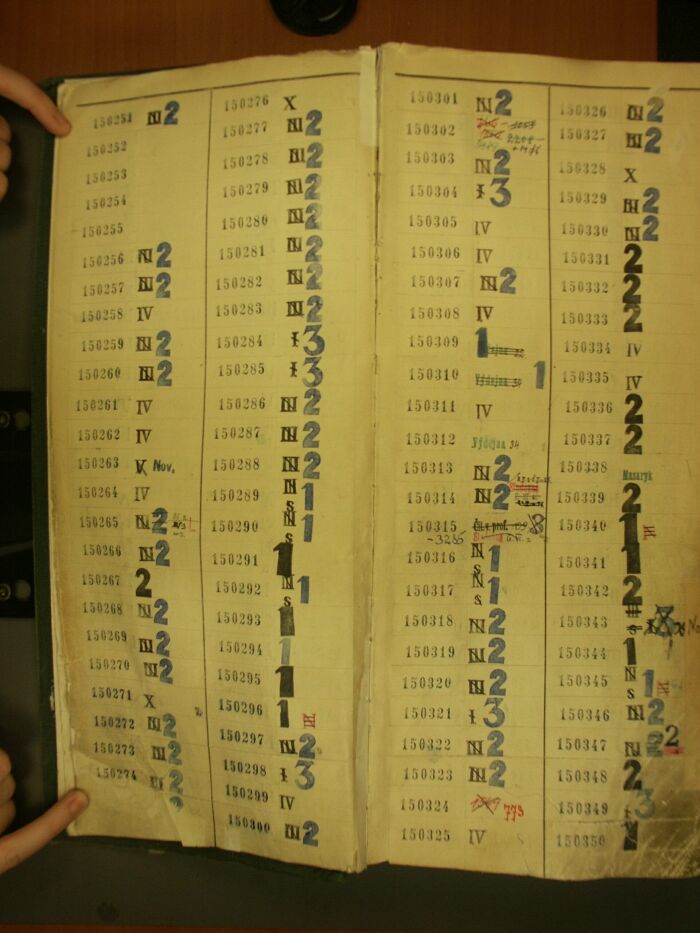 150251 N 2
150252
150253
150254
150255
150256 N 2
150257 N 2
150258 IV
150259 N 2
150260 N 2
150261 IV
150262 IV
150263 V Nov.
150264 IV
150265 N 2
150266 N 2
150267 2
150268 N 2
150269 N 2
150270 N 2
150271 X
150272 N 2
150273 N 2
150274 N 2
2
150276 X
150277 N 2
150278 N 2
150279 N 2
150280 N 2
150281 N 2
150282 N 2
150283 N 2
150284 I 3
150285 I 3
150286 N 2
150287 N 2
150288 N 2
150289 N s 1
150290 N s 1
150291 1
150292 N s 1
150293 1
150294 1
150295 1
150296 1
150297 N 2
150298 I 3
150299 IV
150300 N 2
150301 N 2
150302
150303 N 2
150304 I 3
150305 IV
150306 IV
150307 N 2
150308 IV
150309 1 Výdejna
150310 Výdejna 1
150311 IV
150312 Výdejna 34
150313 N 2
150314 N 2
150315 Čít. prof. 8
-3286
150316 N s 1
150317 N s 1
150318 N 2
150319 N 2
150320 N 2
150321 I 3
150322 N 2
150323 N 2
150324 773
150325 IV
150326 N 2
150327 N 2
150328 X
150329 N 2
150330 N 2
150331 2
150332 2
150333 2
150334 IV
150335 IV
150336 2
150337 2
150338 Masaryk
150339 2
150340 1
150341 1
150342 2
150343
150344 1
150345 N s 1
150346 N 2
150347 N 2 2
150348 2
150349 3
150350 1